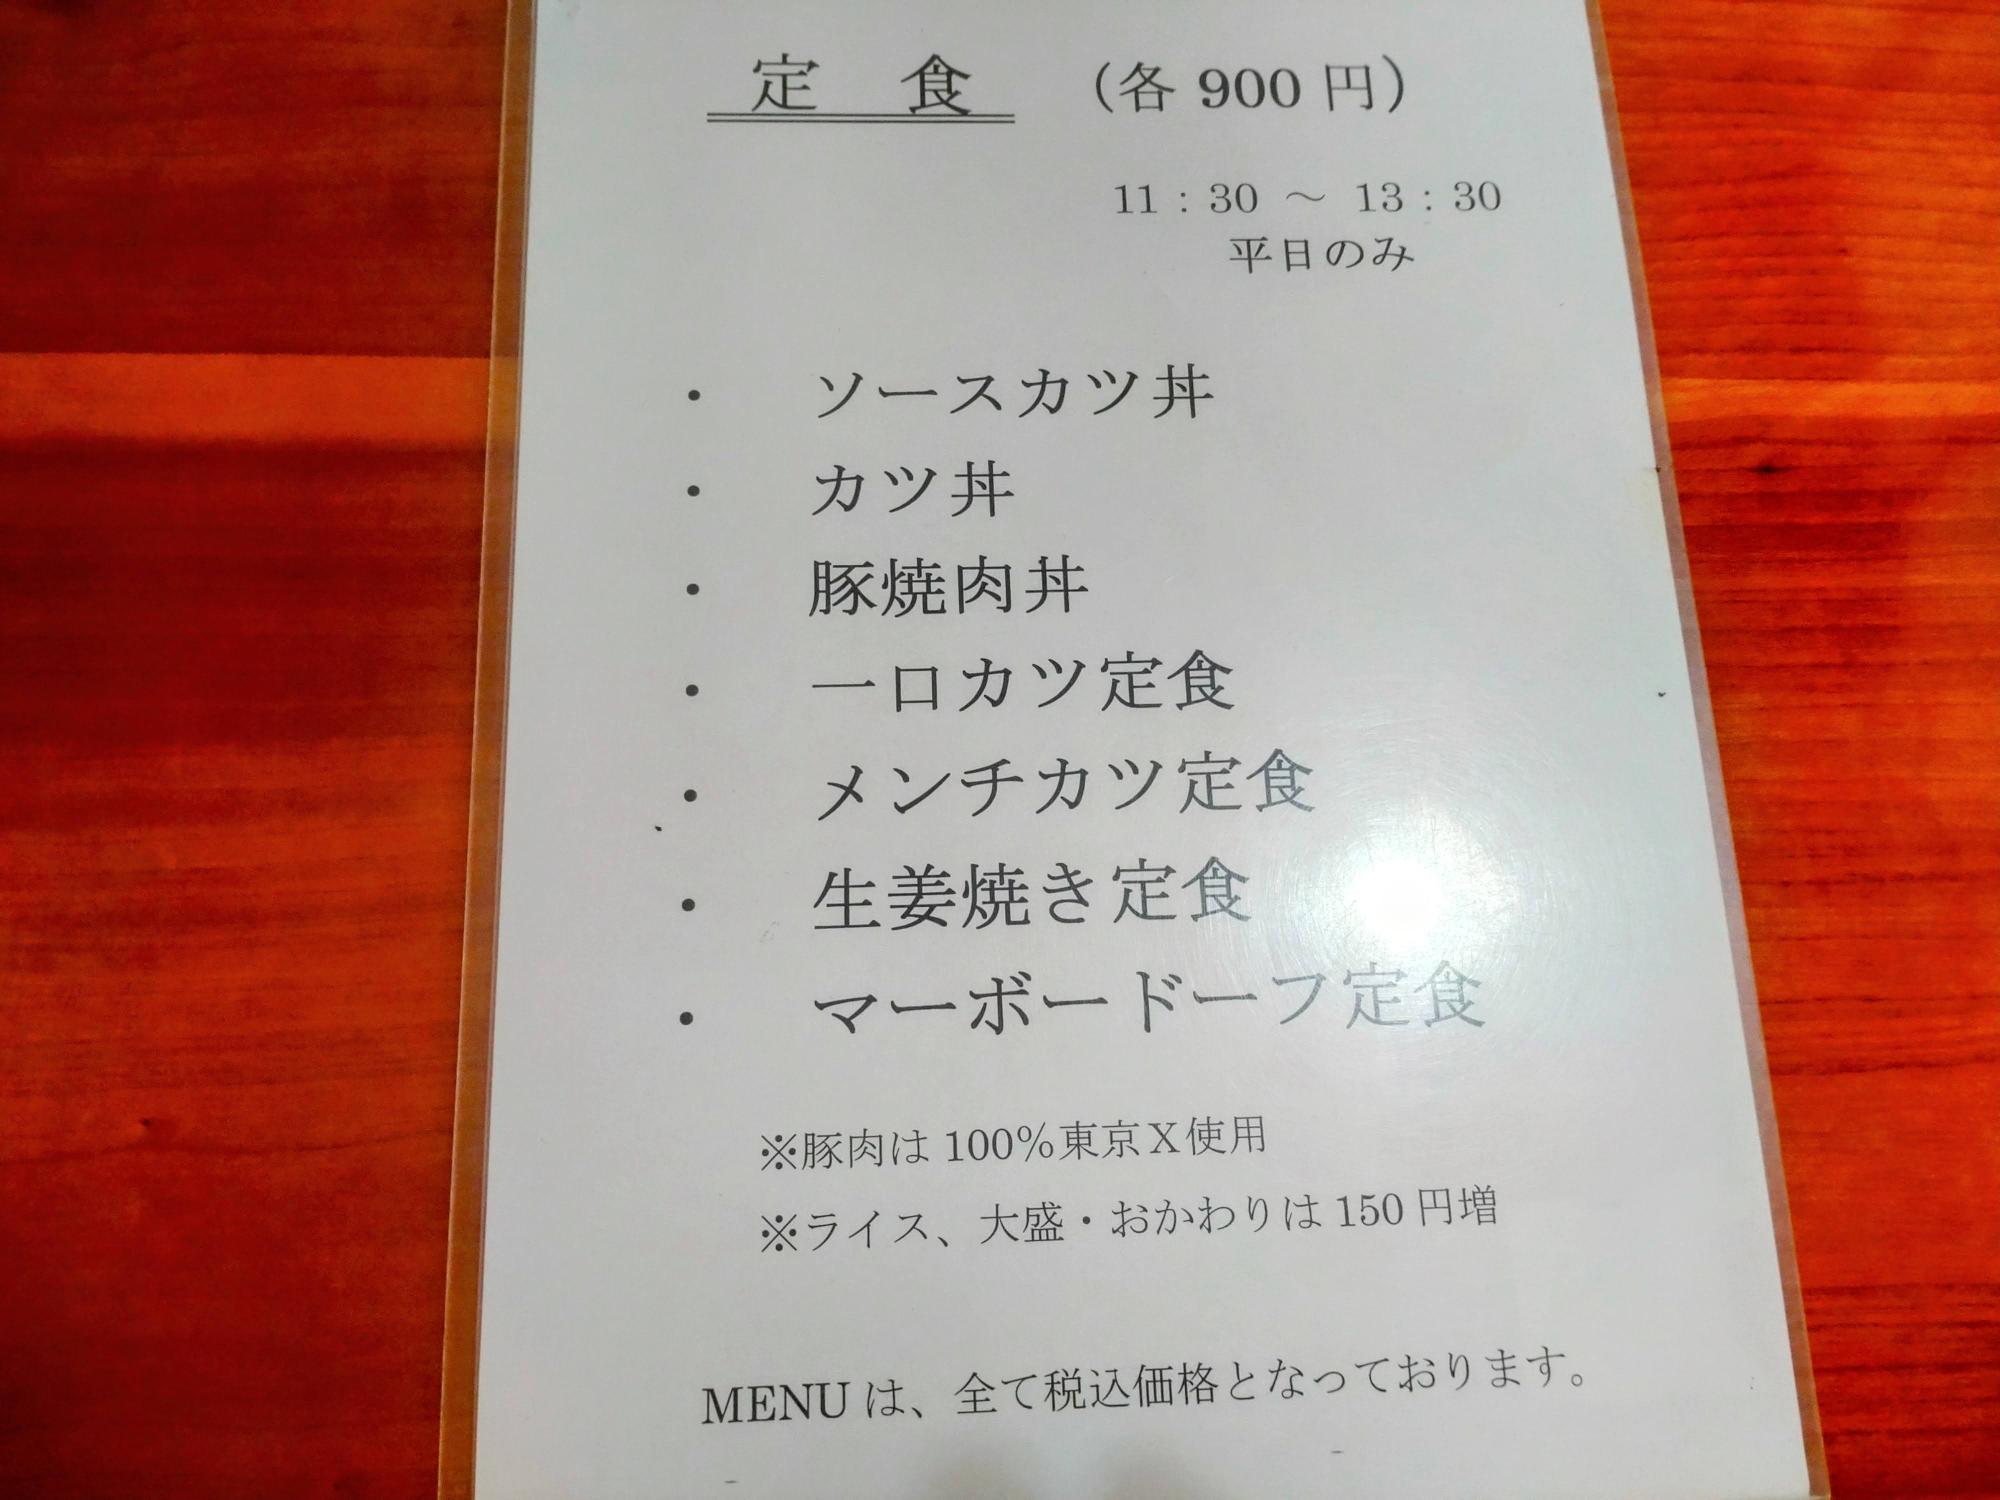 定　食　（各 900 円）
11：30 ～ 13：30
平日のみ
・ソースカツ丼
・カツ丼
・豚焼肉丼
・一口カツ定食
・メンチカツ定食
・生姜焼き定食
・マーボードーフ定食
※豚肉は 100％東京Ｘ使用
※ライス、大盛・おかわりは 150 円増
MENU は、全て税込価格となっております。